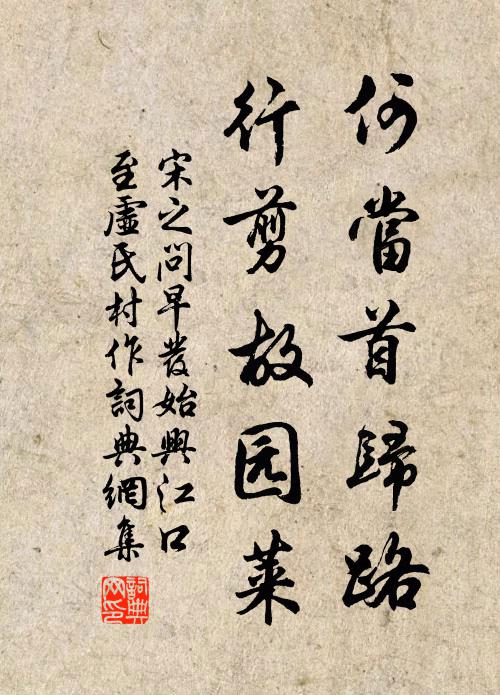 何當首歸路
行剪故园莱
宋之問早發始興江口
至虛氏村作詞典網集
詞典網印